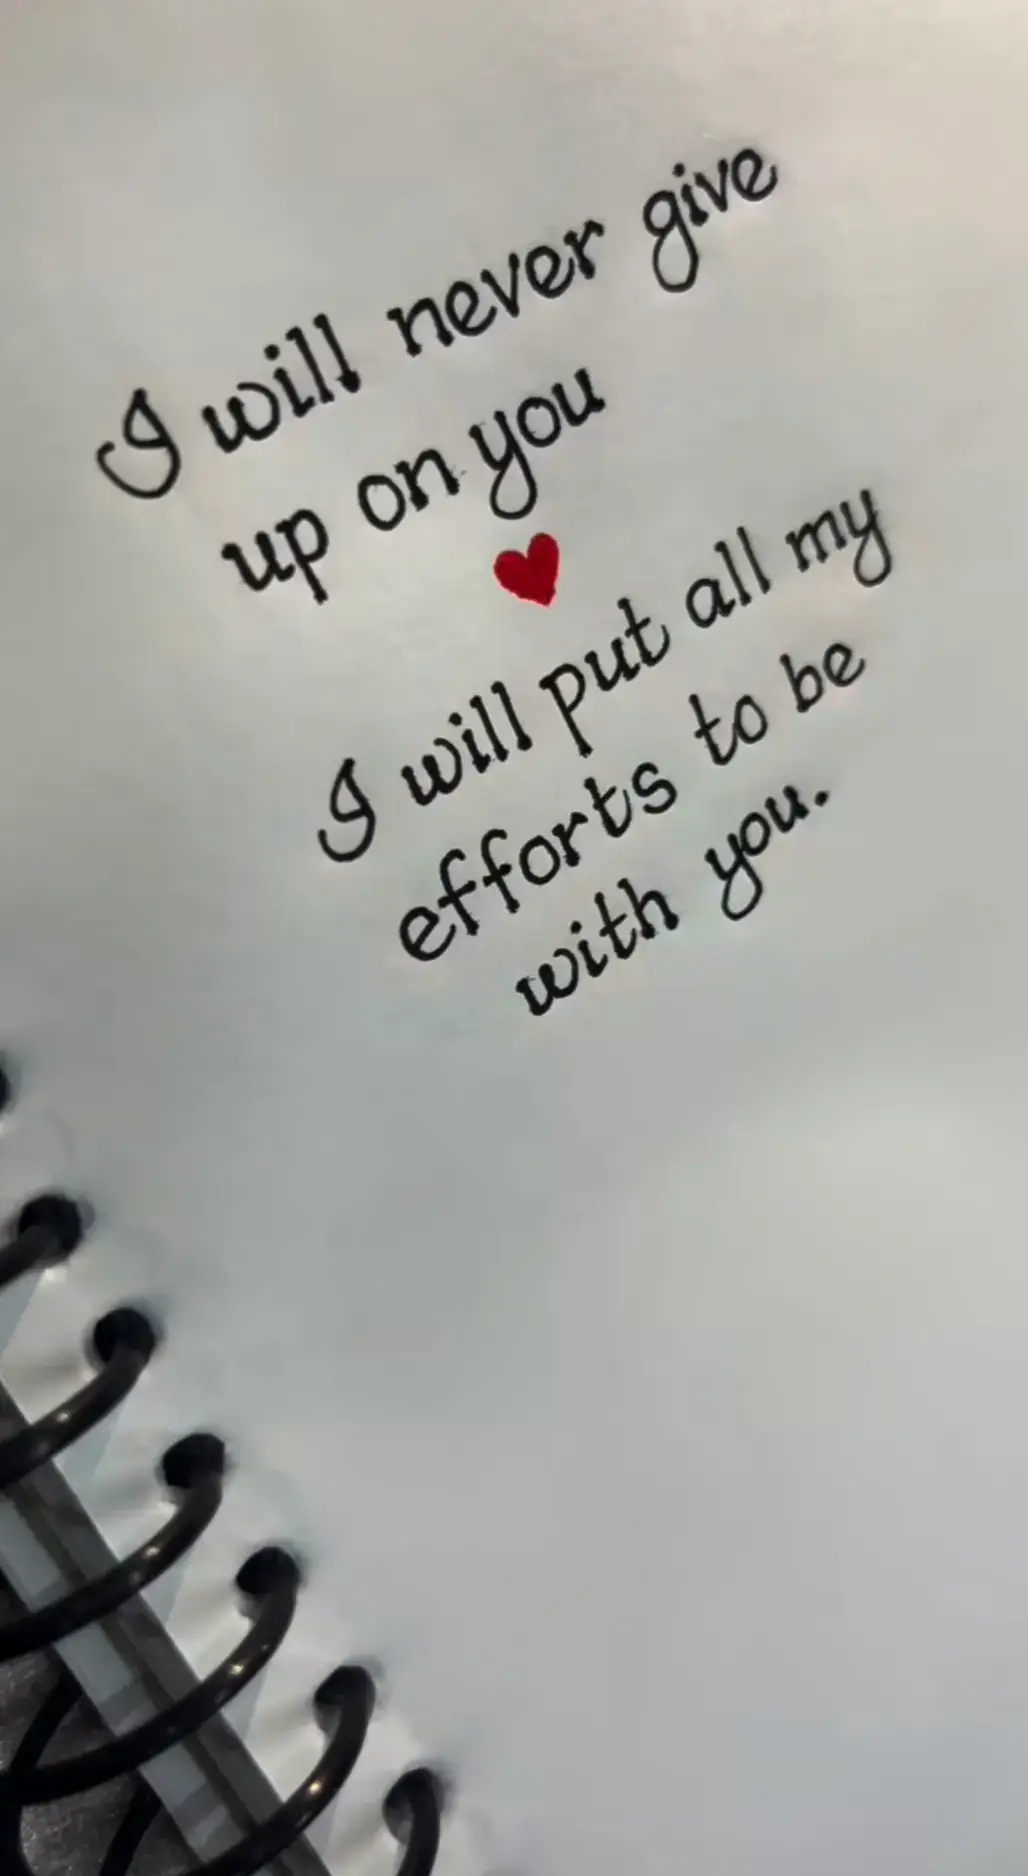 I will never give
up on you
I will put all my
efforts to be
with you.